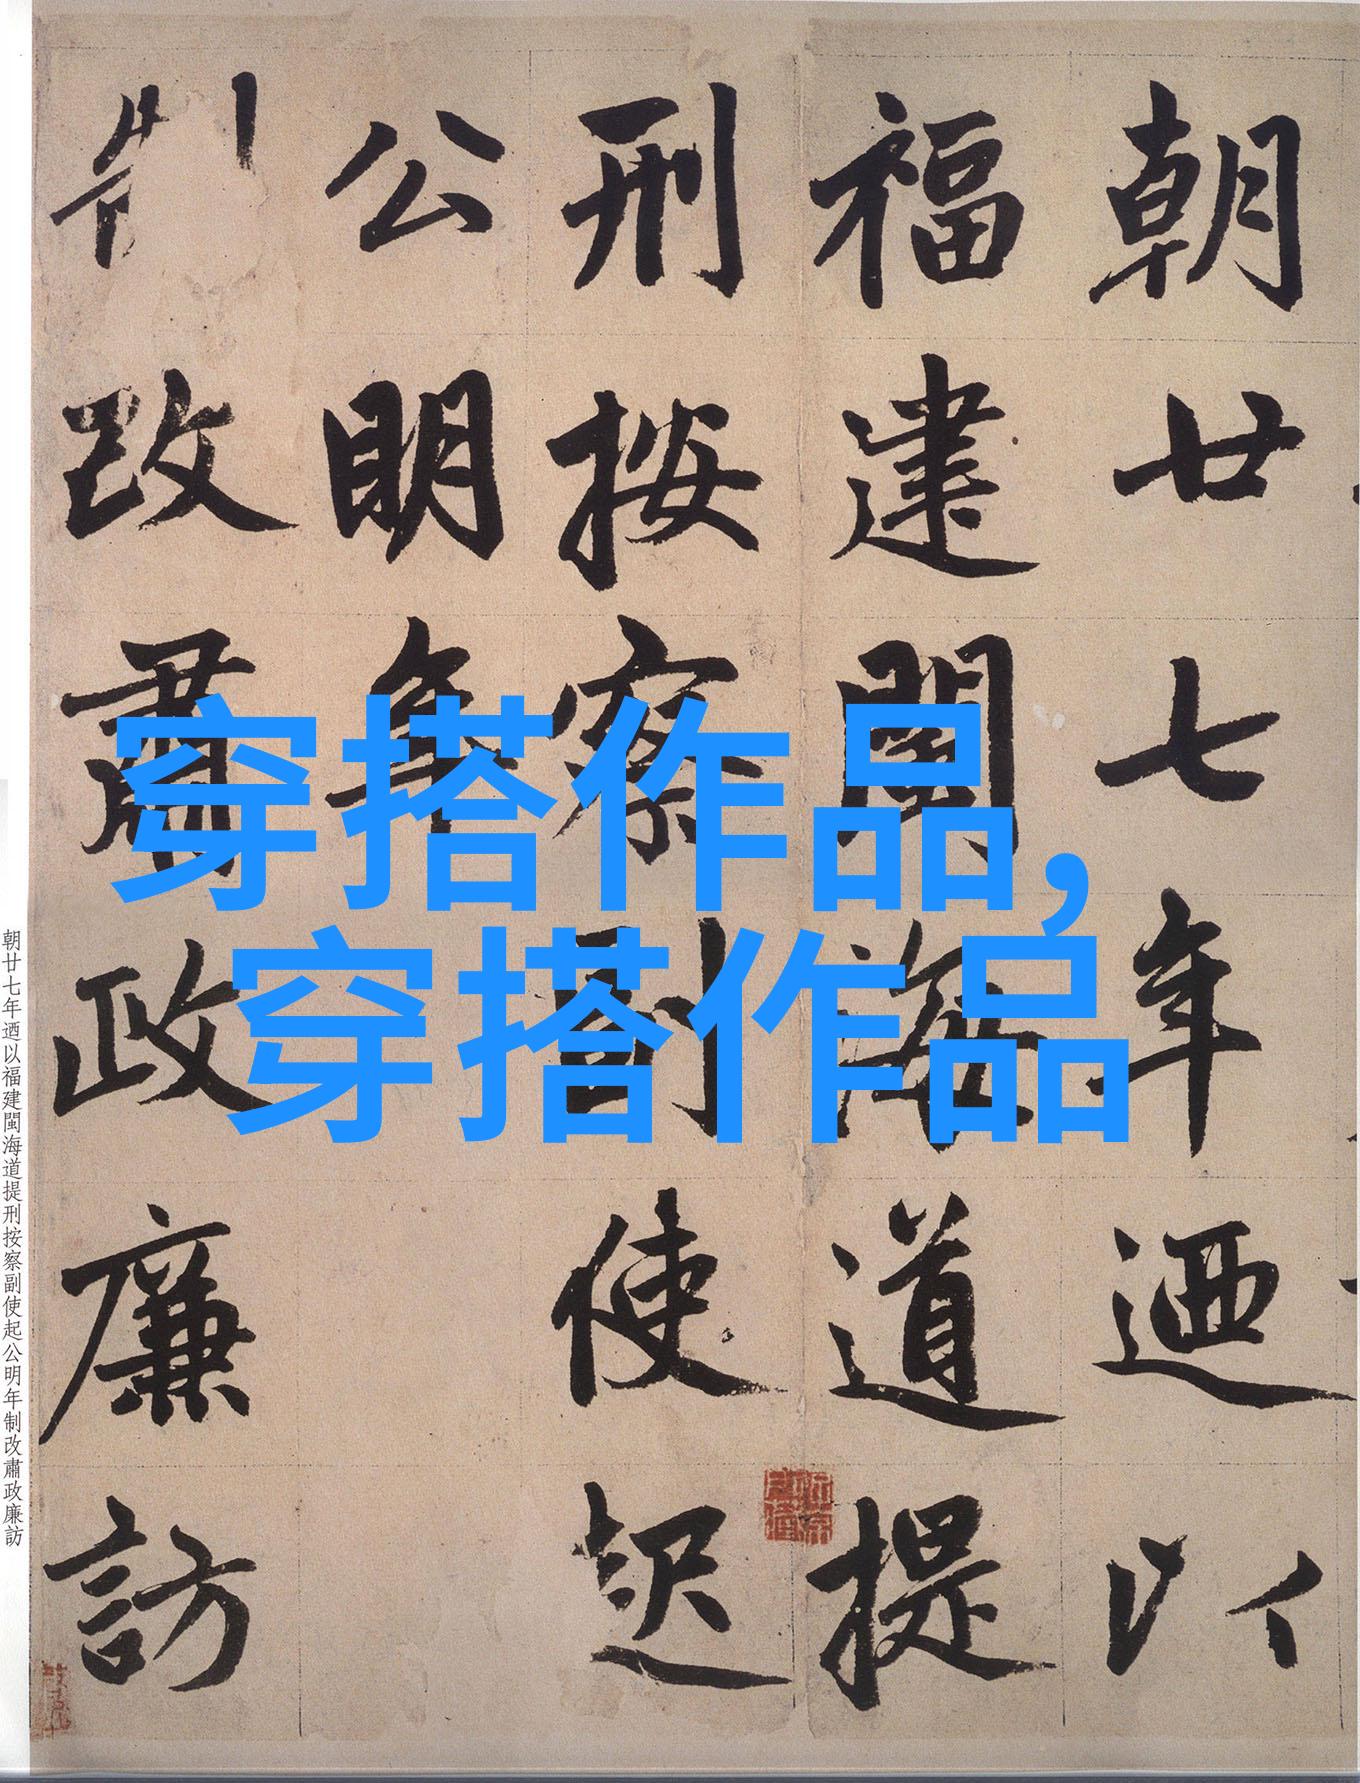 朝廿七年迺以
福建閩海道提
刑按察副使起
公明年
制改肅政廉訪
穿搭作品,
穿搭作品
朝廿七年迺以福建閩海道提刑按察副使起公明年制改肅政廉訪